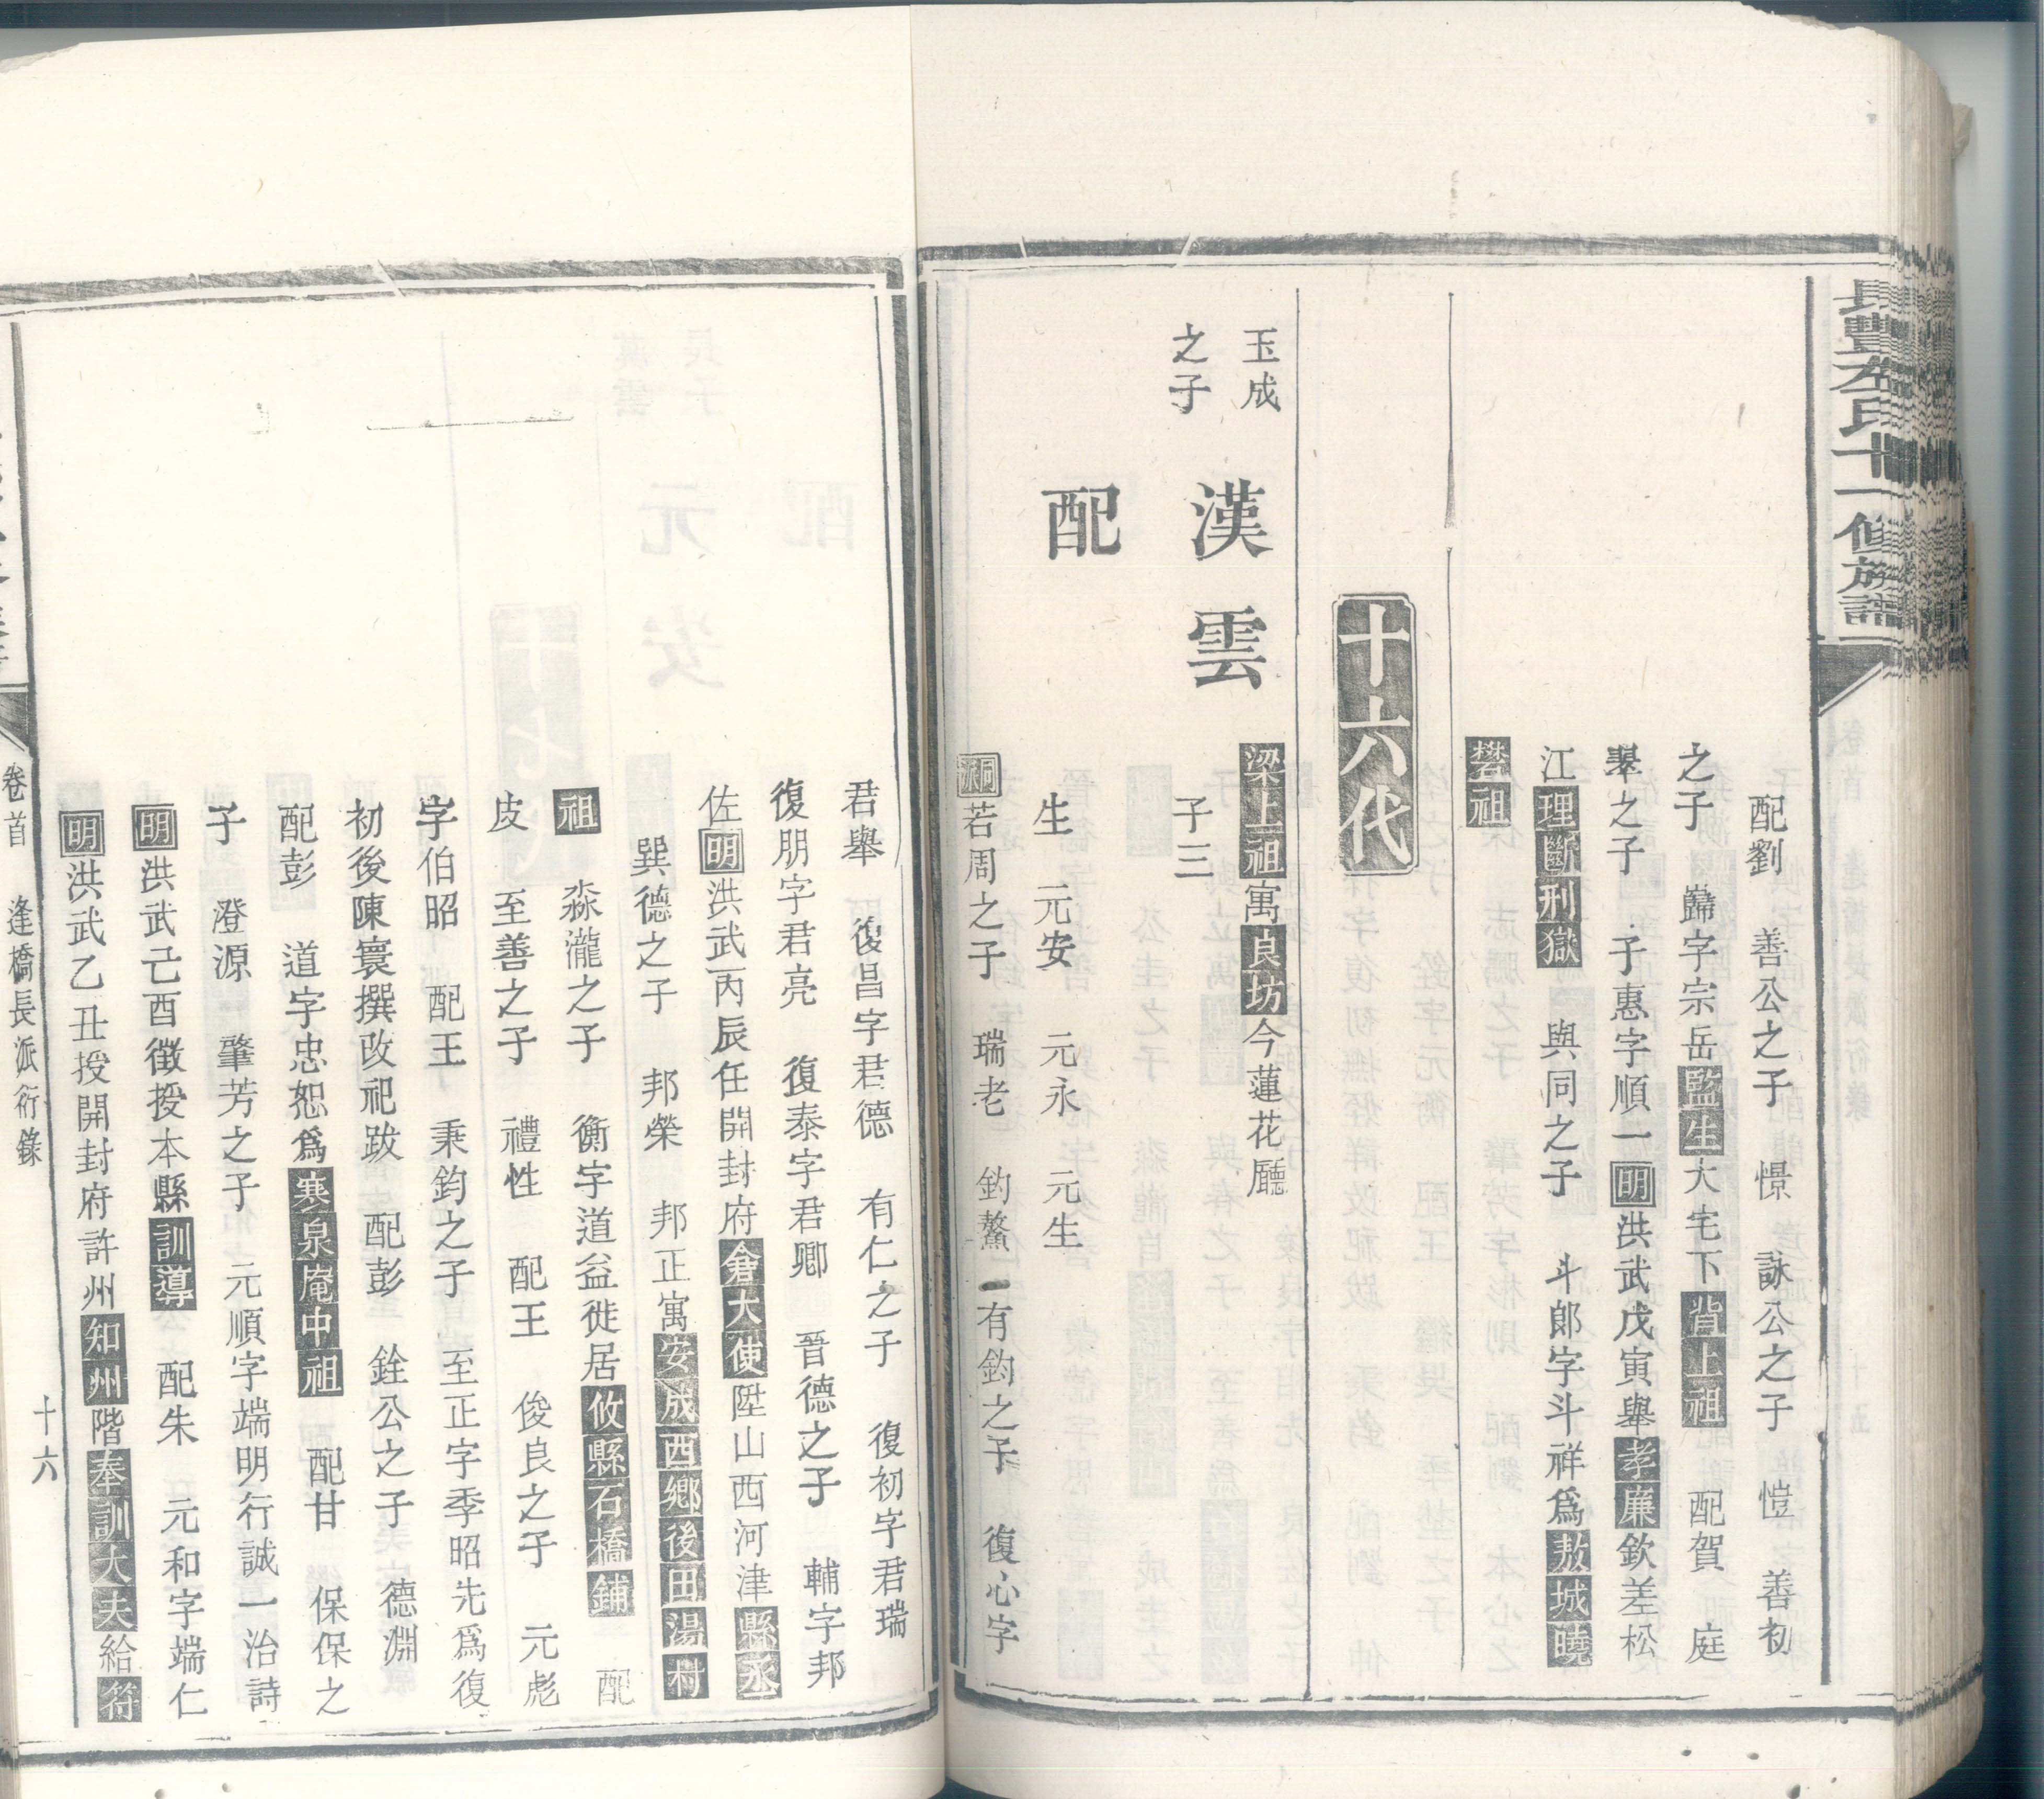 長豐左氏十一修族譜
配劉　善公之子　憬　詠公之子　愷　善初
之子　巋字宗岳監生大宅下背上祖　配賀　庭
舉之子　子惠字順一明洪武戊寅舉孝廉欽差松
江理斷刑獄　與同之子　斗郎字斗祥爲敖城曉
礬祖
十六代
玉成
之子
漢雲
梁上祖寓良坊今蓮花廳
子三
配
生　元安　元永　元生
若周之子　瑞老　釣鰲　有鈞之子　復心字
君舉　復昌字君德　有仁之子　復初字君瑞
復朋字君亮　復泰字君卿　晉德之子　輔字邦
佐明洪武丙辰任開封府倉大使陞山西河津縣丞
巽德之子　邦榮　邦正寓安成西鄉後田湯村
祖　淼瀧之子　衡字道益徙居攸縣石橋鋪　配
皮　至善之子　禮性　配王　俊良之子　元彪
字伯昭　配王　秉鈞之子　至正字季昭先爲復
初後陳寰撰改祀跋　配彭　銓公之子　德淵
配彭　道字忠恕爲寒泉庵中祖　配甘　保保之
子　澄源　肇芳之子　元順字端明行誠一治詩
明洪武己酉徵授本縣訓導　配朱　元和字端仁
明洪武乙丑授開封府許州知州階奉訓大夫給符
卷首　逢橋長派衍錄　十六